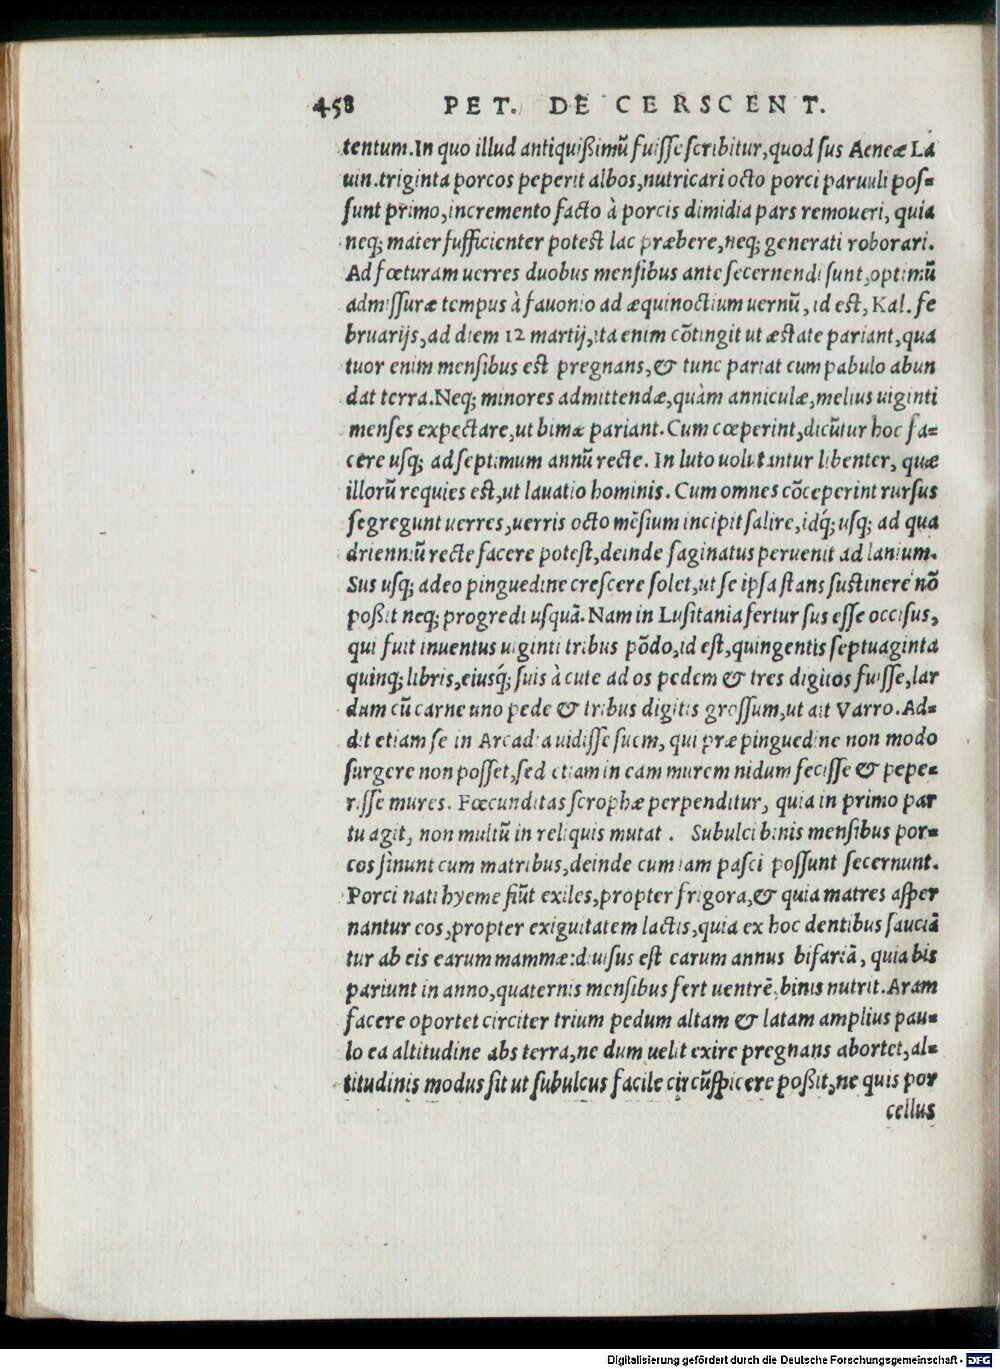 458 PET. DE CERSCENT.
tentum. In quo illud antiquißimũ fuisse scribitur, quod sus Aeneæ La
uin. triginta porcos peperit albos, nutricari octo porci paruuli pos=
sunt primo, incremento facto à porcis dimidia pars remoueri, quia
neq; mater sufficienter potest lac præbere, neq; generati roborari.
Ad fœturam uerres duobus mensibus ante secernendi sunt, optimũ
admissuræ tempus à fauonio ad æquinoctium uernũ, id est, Kal. fe
bruarijs, ad diem 12 martij, ita enim cõtingit ut æstate pariant, qua
tuor enim mensibus est pregnans, & tunc pariat cum pabulo abun
dat terra. Neq; minores admittendæ, quàm anniculæ, melius uiginti
menses expectare, ut bimæ pariant. Cum cœperint, dicũtur hoc fa=
cere usq; ad septimum annũ recte. In luto uolutantur libenter, quæ
illorũ requies est, ut lauatio hominis. Cum omnes cõceperint rursus
segregunt uerres, uerris octo mẽsium incipit salire, idq́; usq; ad qua
drienniũ recte facere potest, deinde saginatus peruenit ad lanium.
Sus usq; adeo pinguedine crescere solet, ut se ipsa stans sustinere nõ
poßit neq; progredi usquã. Nam in Lusitania fertur sus esse occisus,
qui fuit inuentus uiginti tribus põdo, id est, quingentis septuaginta
quinq; libris, eiusq́; suis à cute ad os pedem & tres digitos fuisse, lar
dum cũ carne uno pede & tribus digitis grossum, ut ait Varro. Ad=
dit etiam se in Arcadia uidisse suem, qui præ pinguedine non modo
surgere non posset, sed etiam in eam murem nidum fecisse & pepe=
risse mures. Fœcunditas scrophæ perpenditur, quia in primo par
tu agit, non multũ in reliquis mutat . Subulci binis mensibus por=
cos sinunt cum matribus, deinde cum iam pasci possunt secernunt.
Porci nati hyeme fiũt exiles, propter frigora, & quia matres asper
nantur eos, propter exiguitatem lactis, quia ex hoc dentibus sauciã
tur ab eis earum mammæ: diuisus est earum annus bifariã, quia bis
pariunt in anno, quaternis mensibus fert uentrẽ, binis nutrit. Aram
facere oportet circiter trium pedum altam & latam amplius pau=
lo ea altitudine abs terra, ne dum uelit exire pregnans abortet, al=
titudinis modus sit ut subulcus facile circũspicere poßit, ne quis por
cellus
Digitalisierung gefördert durch die Deutsche Forschungsgemeinschaft - DFG